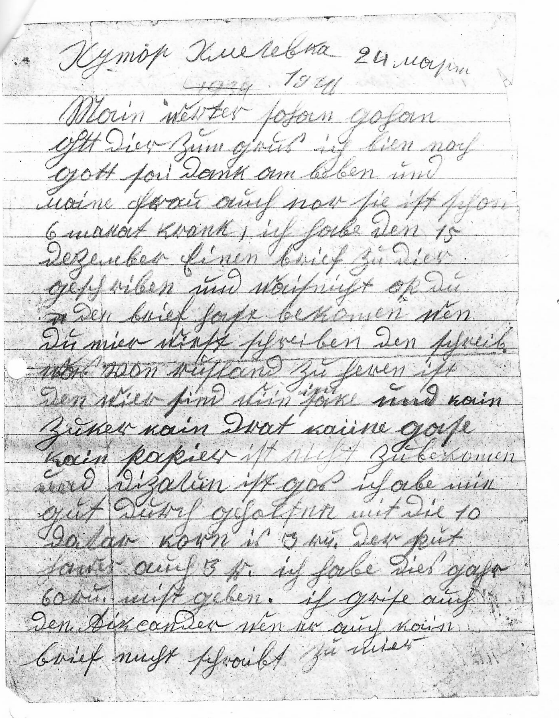 Хутор Хмелевка 24 март
Main werter johan gohan
gott dier zum grus ich bien noch
gott sei dank am leben und
maine frau auch nor sie ist schon
6 manat krank, ich habe den 15
dezember Einen brief zu dier
geschriben und waisnicht ob du
den brief hast bekomen wen
du mier wirst schreiben den schreib
was von rusland zu heren ist
den wier sind und kain
zuker kain drat kaiine
kain papier ist nicht zu bekomen
und ist ich abe mich
gut durch geholfen mit die 10
dalar korn is 3 ru. der put
auch 3 r. ich habe dies gahr
60 ru. mist geben. ich grise auch
den wen er auch kain
brief nicht schraibt zu mier